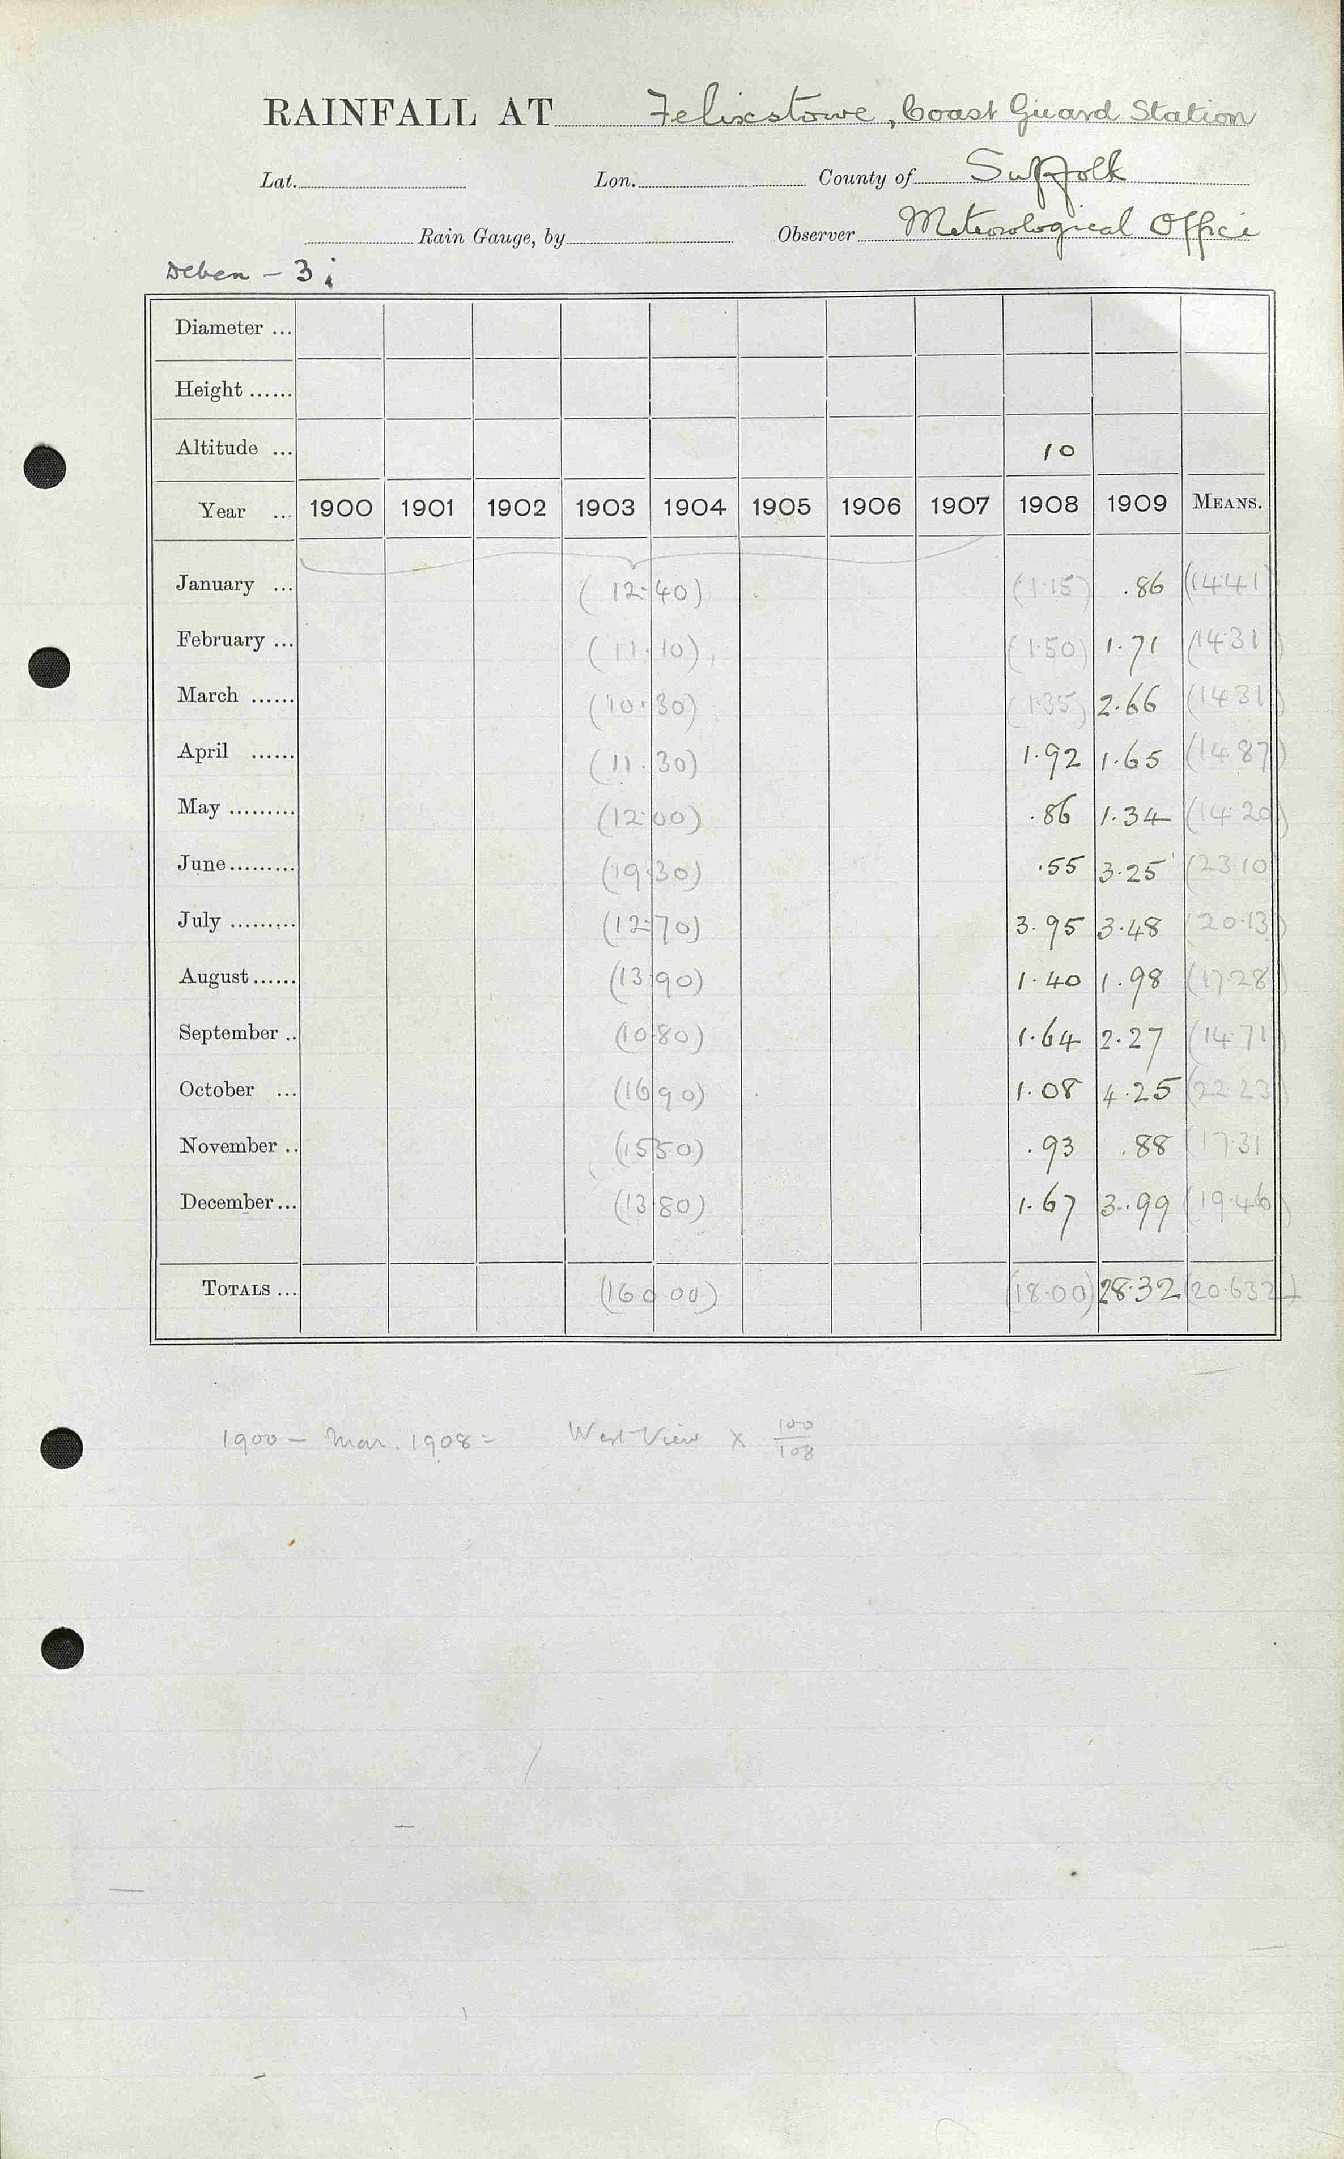 RAINFALL AT Felixstowe, Coast Guard Station
Lat. Lon. County of Suffolk
Rain Gauge, by Observer Meteorological Office
Deben - 3 i
Diameter ...
Height ......
Altitude ... 10
Year ... 1900 1901 1902 1903 1904 1905 1906 1907 1908 1909 MEANS.
January ... (12.40) (1.15) .86 (14.41)
February ... (11.10) (1.50) 1.71 (14.31)
March ...... (10.30) (1.35) 2.66 (14.31)
April ...... (11.30) 1.92 1.65 (14.87)
May ......... (12.00) .86 1.34 (14.20)
June ......... (19.30) .55 3.25 (23.10)
July ......... (12.70) 3.95 3.48 (20.13)
August ...... (13.90) 1.40 1.98 (17.28)
September .. (10.80) 1.64 2.27 (14.71)
October ... (16.90) 1.08 4.25 (22.23)
November .. (15.50) .93 .88 (17.31)
December ... (13.80) 1.67 3.99 (19.46)
TOTALS ... (160.00) (18.00) 28.32 (20.632)
1900 - Mar. 1908 = West View x 100/108